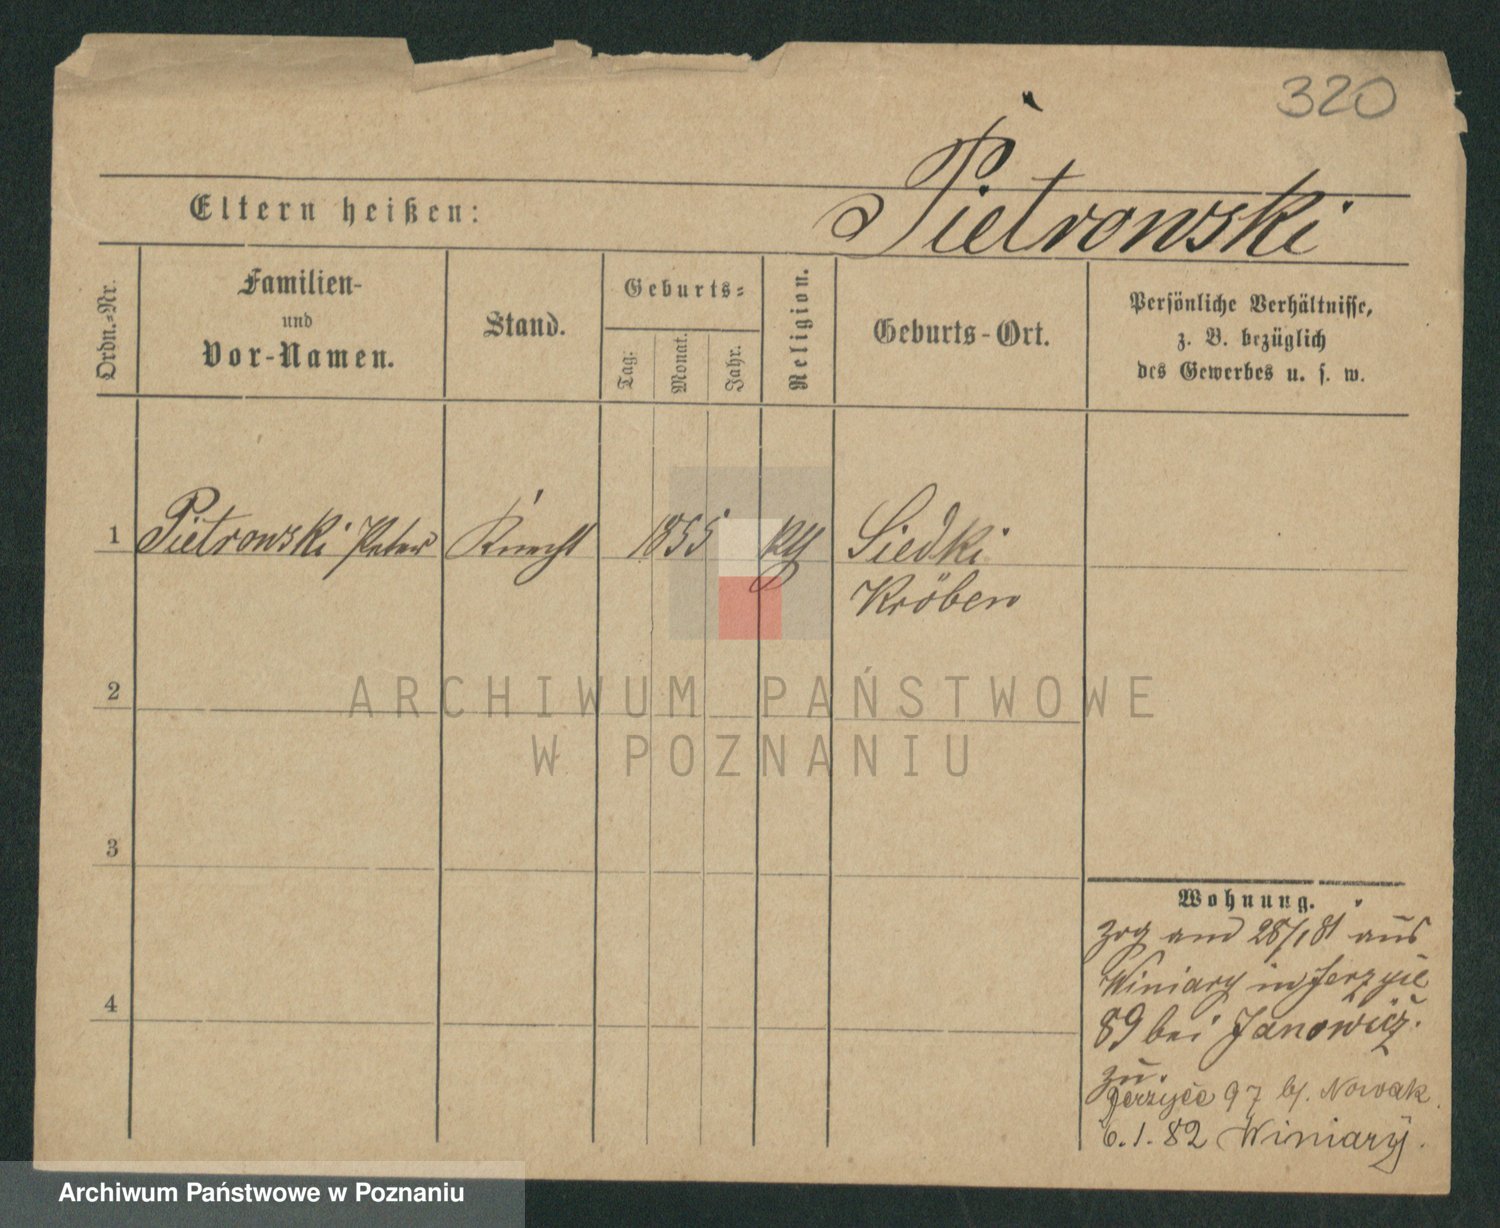 320
Pietrowski
Eltern heißen:
Ordn.-Nr.
Familien-
und
Vor-Namen.
Stand.
Geburts-
Tag.
Monat.
Jahr.
Religion.
Geburts-Ort.
Persönliche Verhältnisse,
z. B. bezüglich
des Gewerbes u. s. w.
1 Pietrowski Peter Knecht 1855 Siedki
Kröben
2
ARCHIWUM PAŃSTWOWE
W POZNANIU
3
Wohnung.
zog am 28/1 81 aus
Winiary in Jerzyce
89 bei Janowicz
zu.
4
Jerzyce 97 b/. Nowak
6.1.82 Winiary.
Archiwum Państwowe w Poznaniu